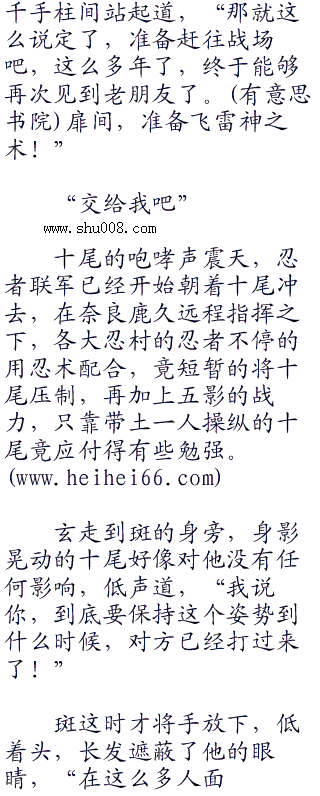 千手柱间站起道，“那就这
么说定了，准备赶往战场
吧，这么多年了，终于能够
再次见到老朋友了。(有意思
书院)扉间，准备飞雷神之
术！”
“交给我吧”
www.shu008.com
十尾的咆哮声震天，忍
者联军已经开始朝着十尾冲
去，在奈良鹿久远程指挥之
下，各大忍村的忍者不停的
用忍术配合，竟短暂的将十
尾压制，再加上五影的战
力，只靠带土一人操纵的十
尾竟应付得有些勉强。
(www.heihei66.com)
玄走到斑的身旁，身影
晃动的十尾好像对他没有任
何影响，低声道，“我说
你，到底要保持这个姿势到
什么时候，对方已经打过来
了！”
斑这时才将手放下，低
着头，长发遮蔽了他的眼
睛，“在这么多人面